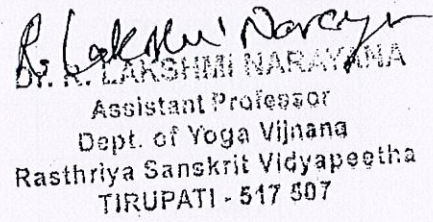 R. Lakshmi Narayan
Dr. R. LAKSHMI NARAYANA
Assistant Professor
Dept. of Yoga Vijnana
Rasthriya Sanskrit Vidyapeetha
TIRUPATI - 517 507